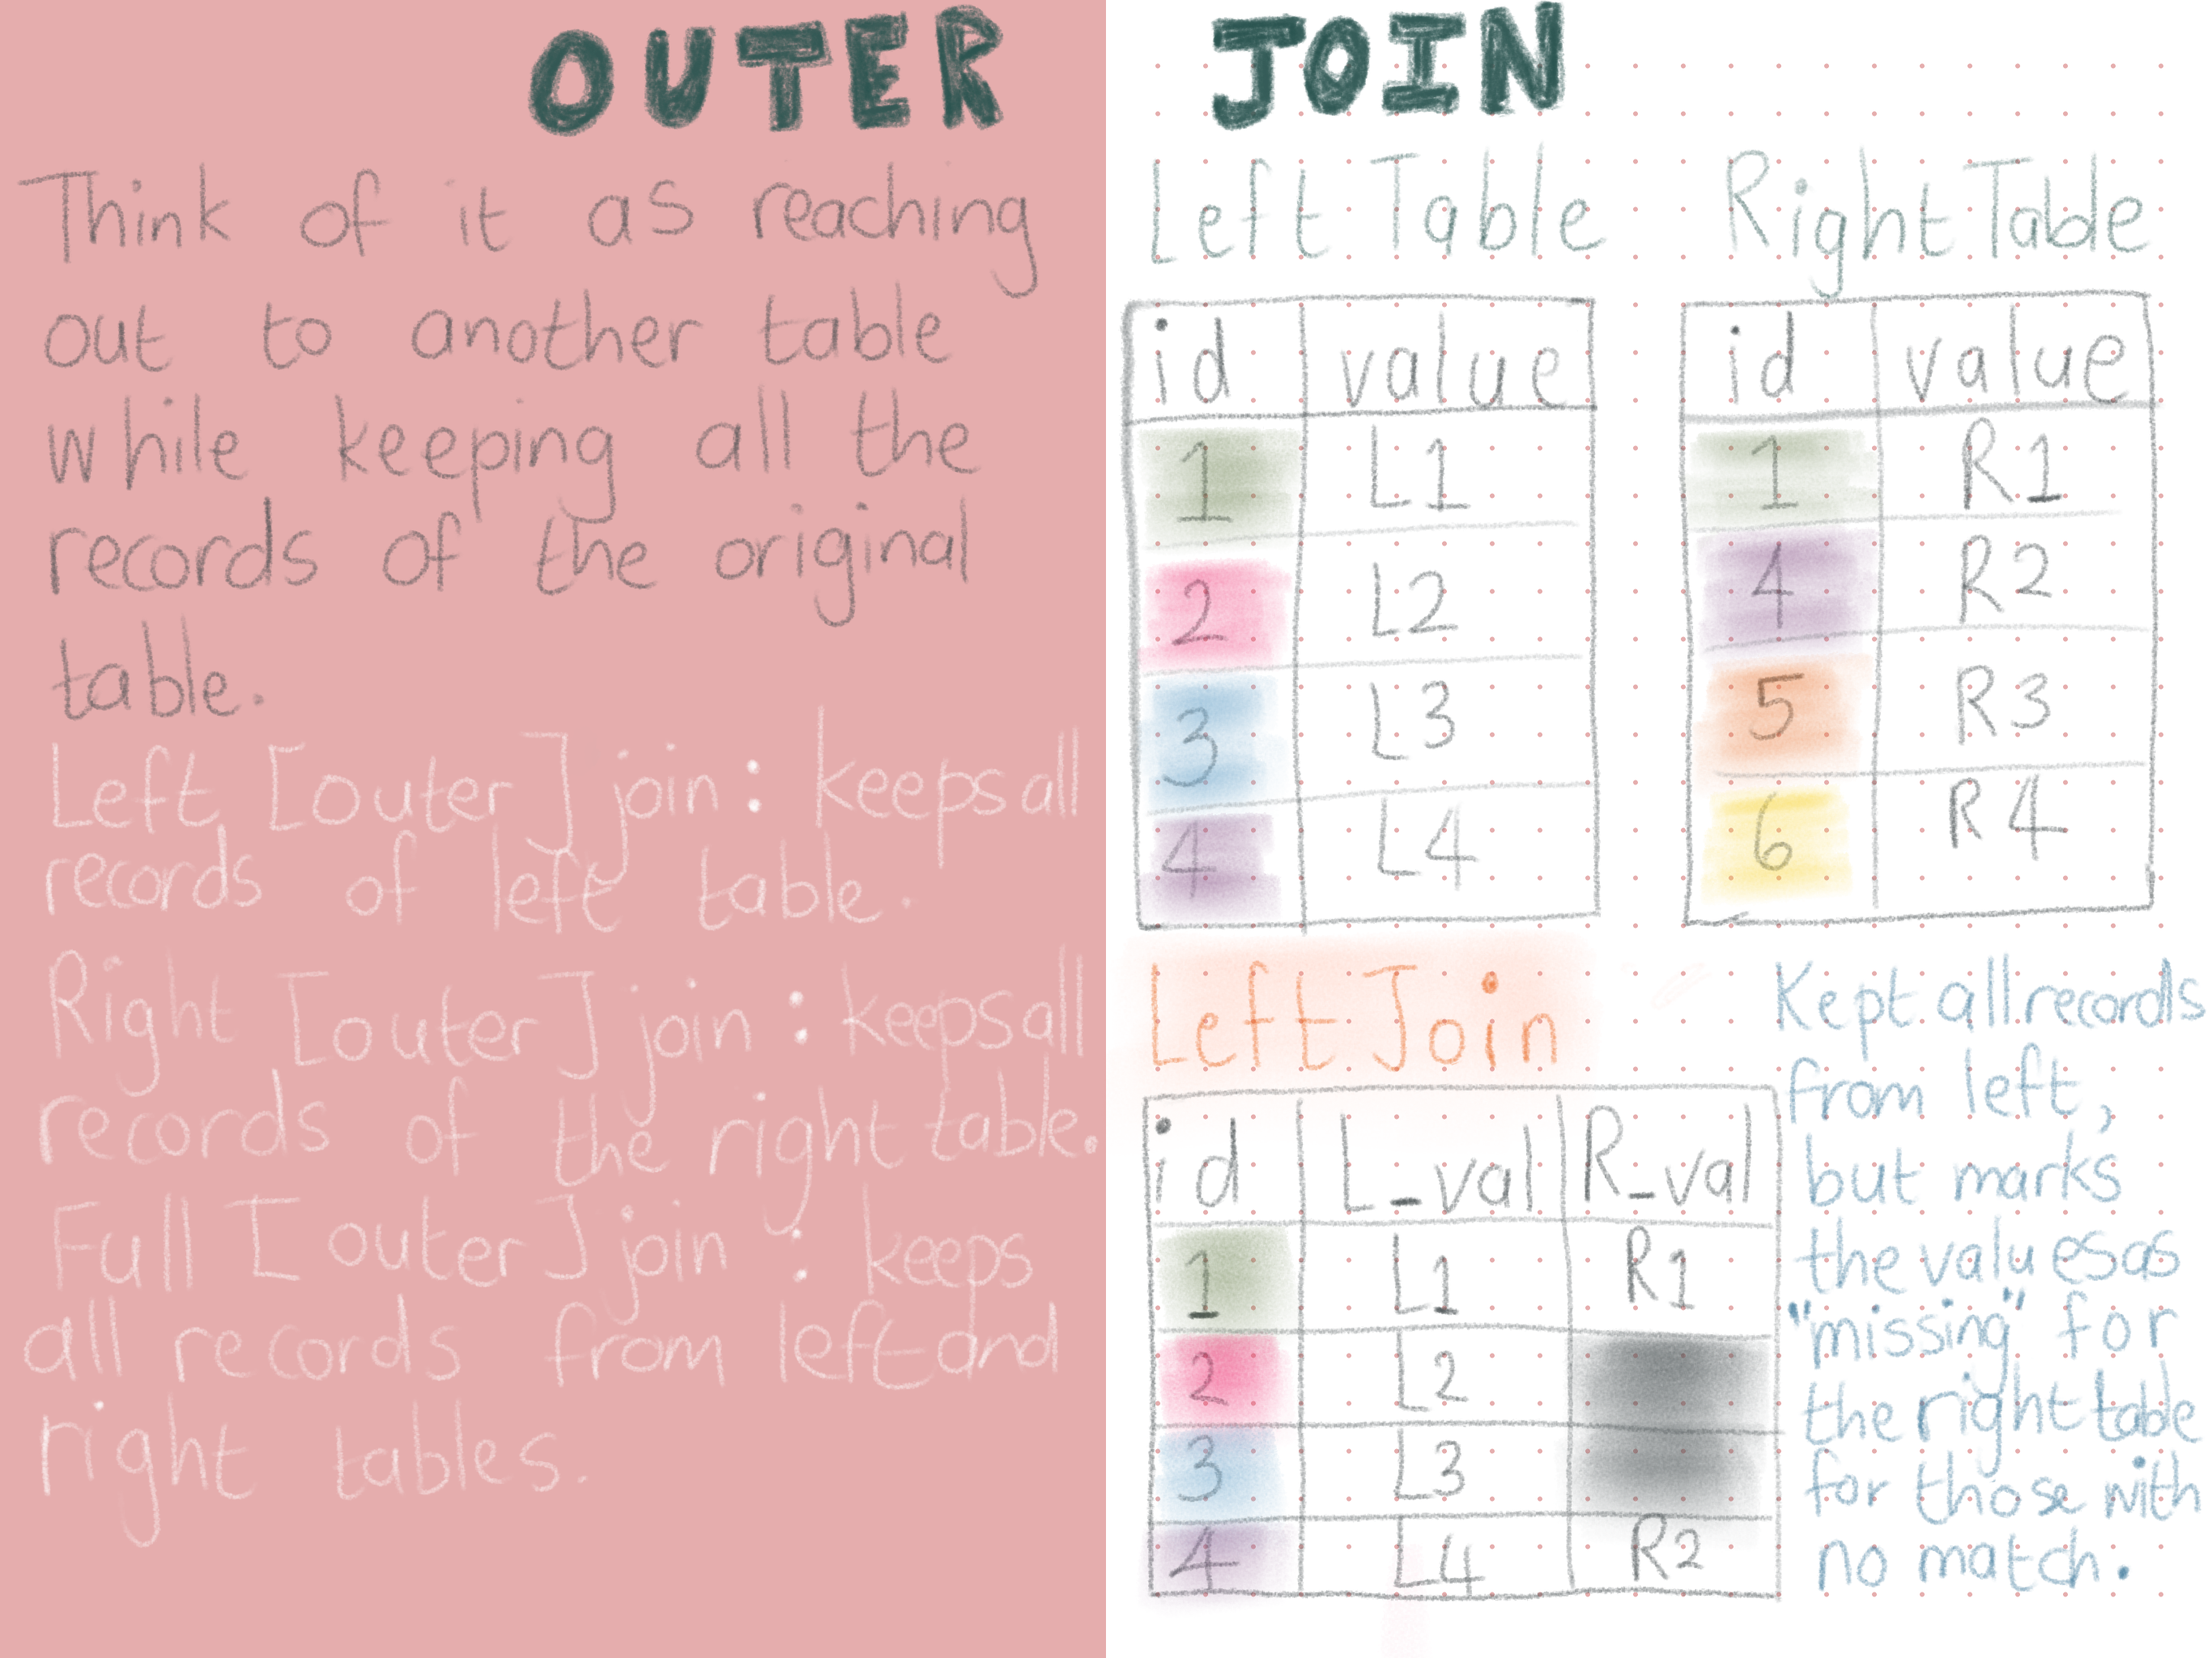 OUTER JOIN
Think of it as reaching
out to another table
while keeping all the
records of the original
table.
Left [outer] join : keeps all
records of left table.
Right [outer] join : keeps all
records of the right table.
Full [outer] join : keeps
all records from left and
right tables.
Left Table
id value
1 L1
2 L2
3 L3
4 L4
Right Table
id value
1 R1
4 R2
5 R3
6 R4
Left Join
id L_val R_val
1 L1 R1
2 L2
3 L3
4 L4 R2
Kept all records
from left,
but marks
the values as
"missing" for
the right table
for those with
no match.